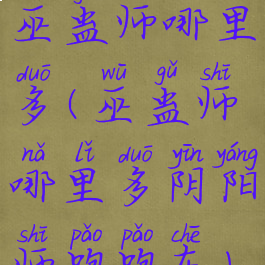 巫蛊师哪里
duō wū gǔ shī
多(巫蛊师
nǎ lǐ duō yīn yáng
哪里多阴阳
shī pǎo pǎo chē
师跑跑车)